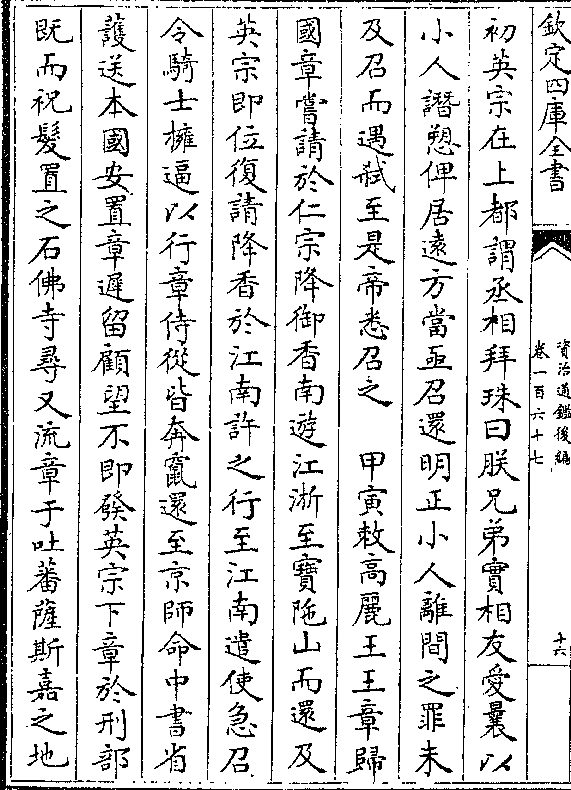 欽定四庫全書
資治通鑑後編
卷一百六十七
十六
初英宗在上都謂丞相拜珠曰朕兄弟實相友愛曩以
小人譖愬俾居遠方當亟召還明正小人離間之罪未
及召而遇弑至是帝悉召之　甲寅敕高麗王王章歸
國章嘗請於仁宗降御香南遊江浙至寶陁山而還及
英宗即位復請降香於江南許之行至江南遣使急召
令騎士擁逼以行章侍從皆奔竄還至京師命中書省
護送本國安置章遲留顧望不即發英宗下章於刑部
既而祝髮置之石佛寺尋又流章于吐蕃薩斯嘉之地